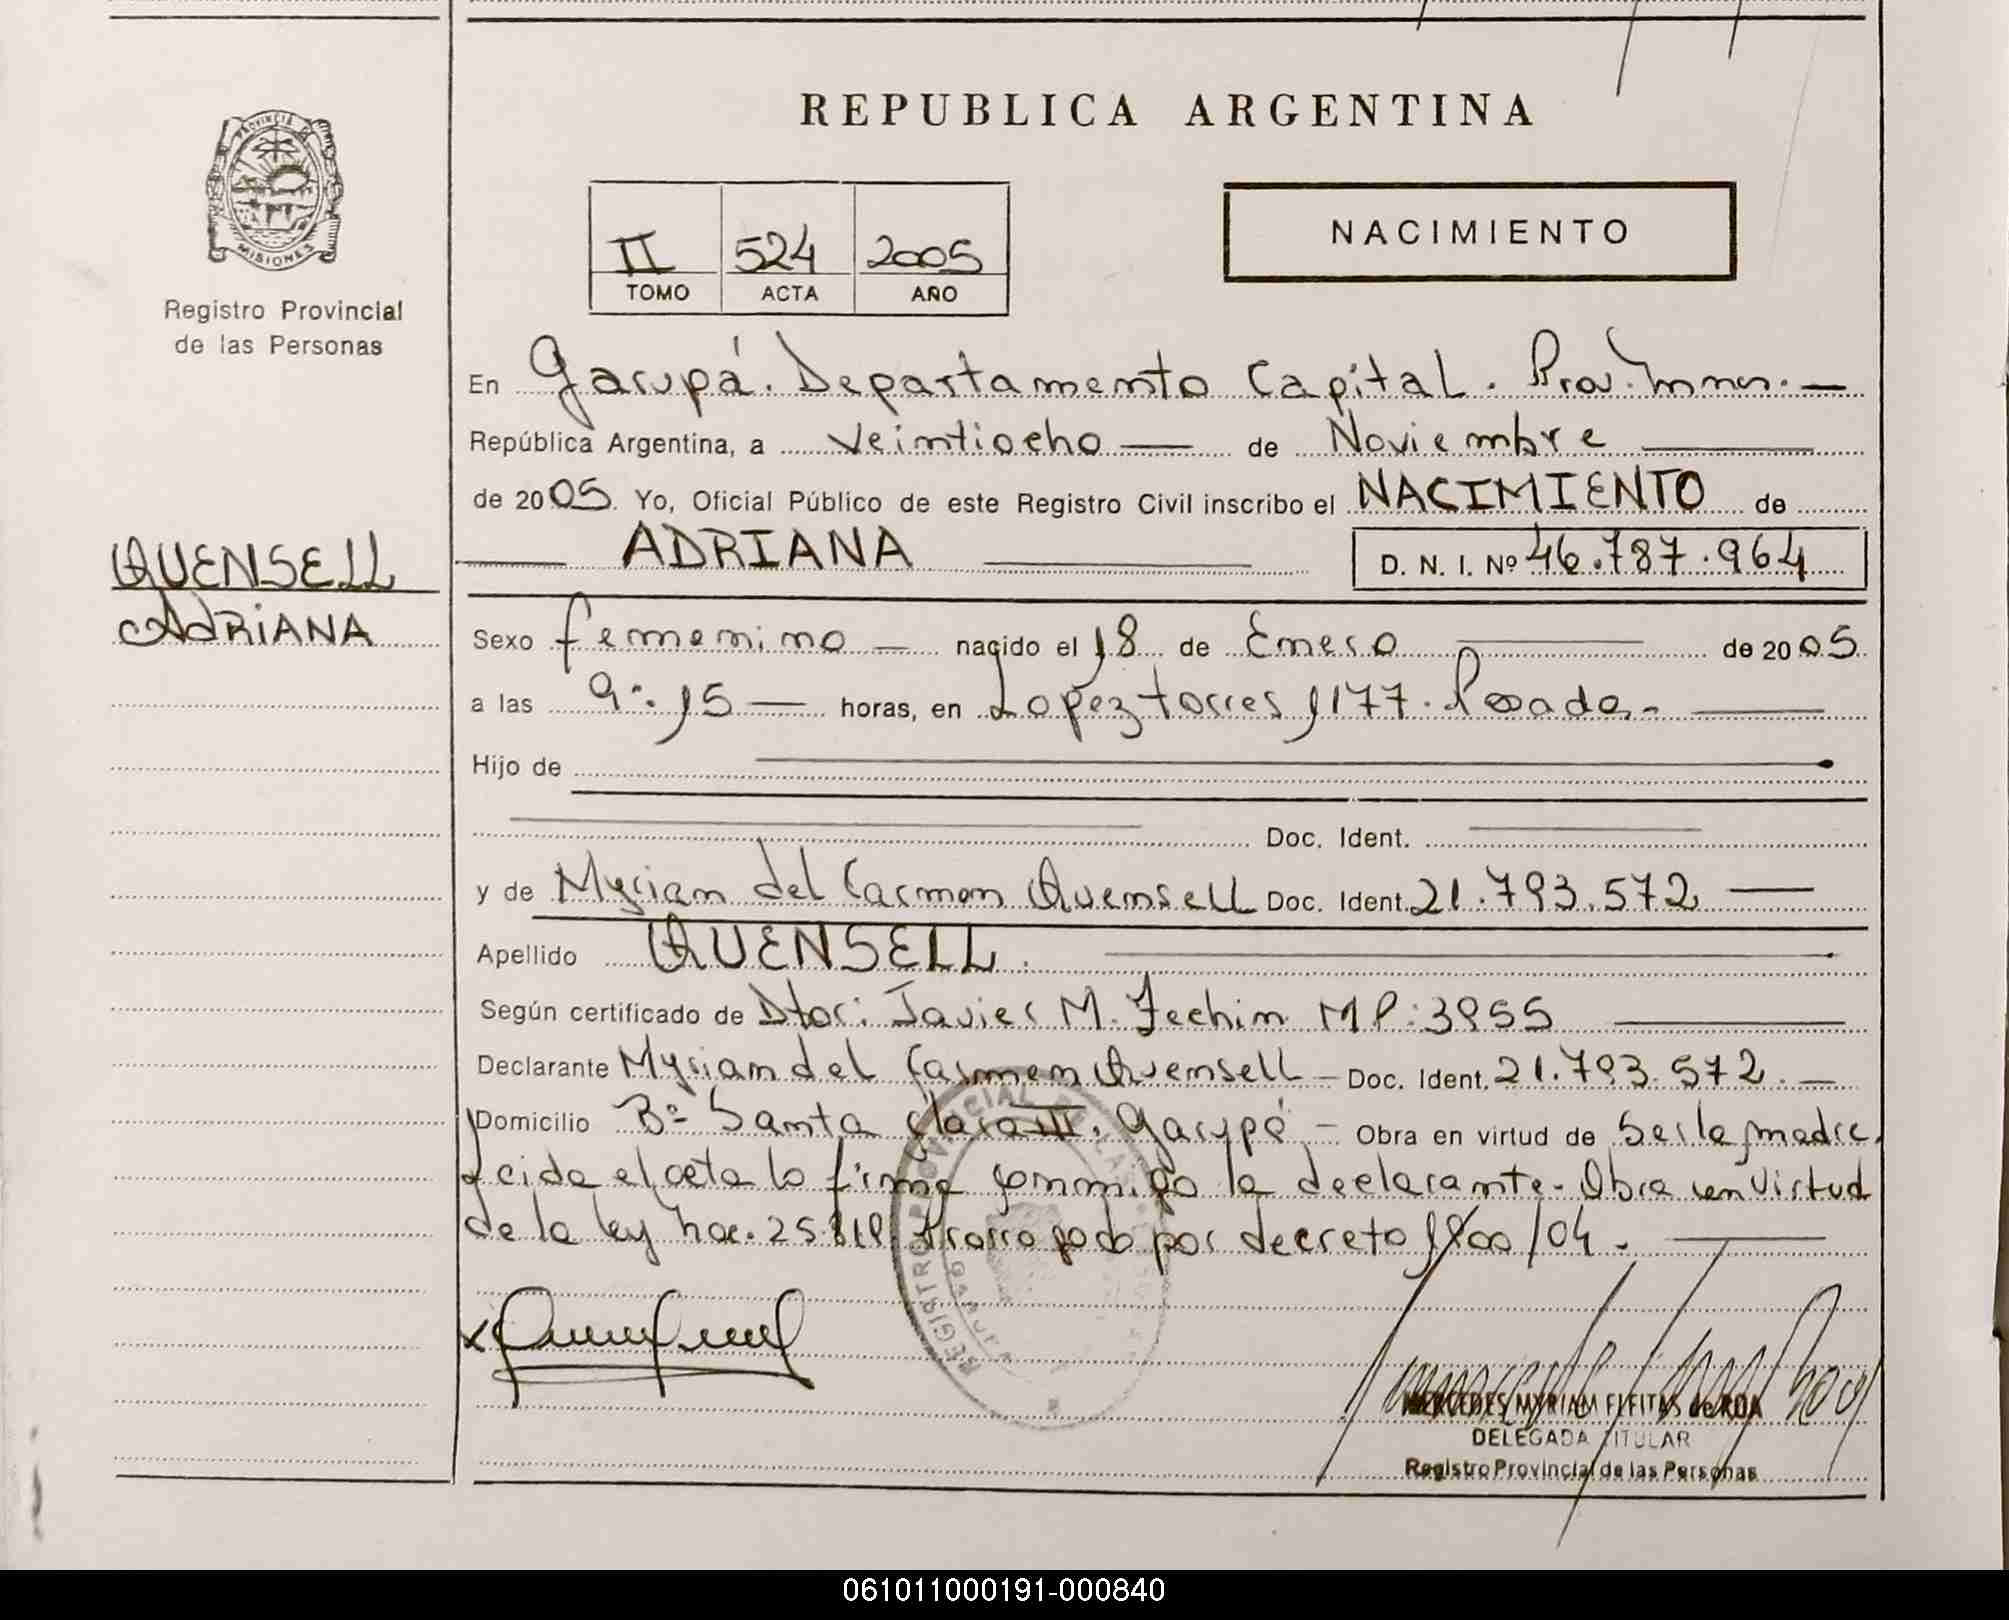 REPUBLICA ARGENTINA
PROVINCIA DE
MISIONES
Registro Provincial
de las Personas
II 524 2005
TOMO ACTA AÑO
NACIMIENTO
En Garupá. Departamento Capital. Prov. Mnes. —
República Argentina, a Veintiocho — de Noviembre
de 2005. Yo, Oficial Público de este Registro Civil inscribo el NACIMIENTO de
QUENSELL
ADRIANA
ADRIANA D. N. I. Nº 46.787.964
Sexo femenino — nacido el 18 de Enero de 2005
a las 9:15 — horas, en Lopez torres 1177. Posadas.-
Hijo de
Doc. Ident.
y de Myriam del Carmen Quensell Doc. Ident. 21.793.572 —
Apellido QUENSELL.
Según certificado de Dtor: Javier M. MP: 3955
Declarante Myriam del Carmen Quensell — Doc. Ident. 21.793.572. —
Domicilio Bº Santa Clara III. Garupá — Obra en virtud de Ser la madre.
Leida el acta lo firma conmigo la declarante. Obra en virtud
de la ley nac. 25.819 Prorrogado por decreto /04.
REGISTRO PROVINCIAL DE LAS
MERCEDES MYRIAM FLEITAS de ROA
DELEGADA TITULAR
Registro Provincial de las Personas
061011000191-000840